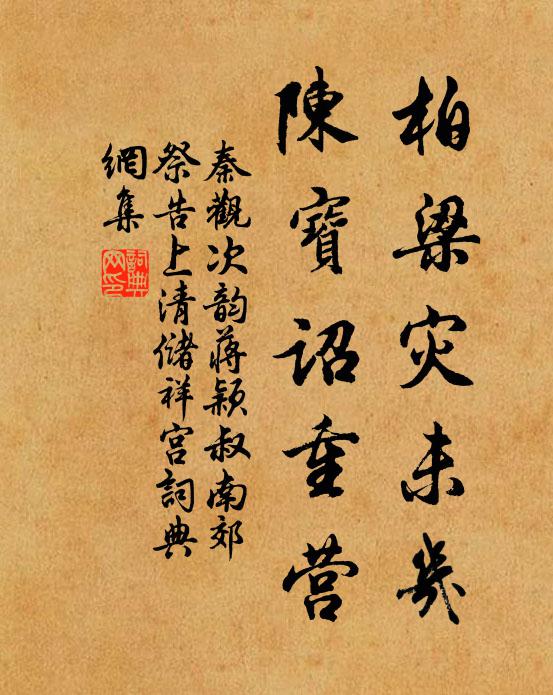 柏梁灾未幾
陳寶詔重营
秦觀次韵蔣颖叔南郊
祭告上清儲祥宫詞典
網集
詞典网印